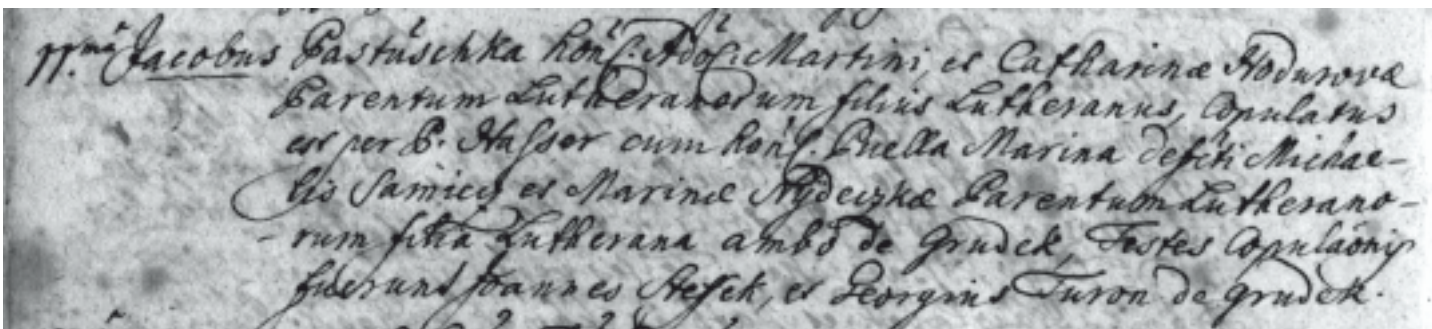 11.mâ Jacobus Pastuschka hon̂s. Ado̊s. Martini, et Catharinæ Hodurovæ
Parentum Lutheranorum filius Lutheranus, Copulatus
est per P. Hasser cum hon̂s. Puella Marina def̂cti Michae-
lis Samiec et Marinæ Nydeczkæ Parentum Lutherano-
- rum filia Lutherana ambo de Grudek, Testes Copulaônis
fuerunt Joannes Stessek, et Georgius Turon de Grudek.